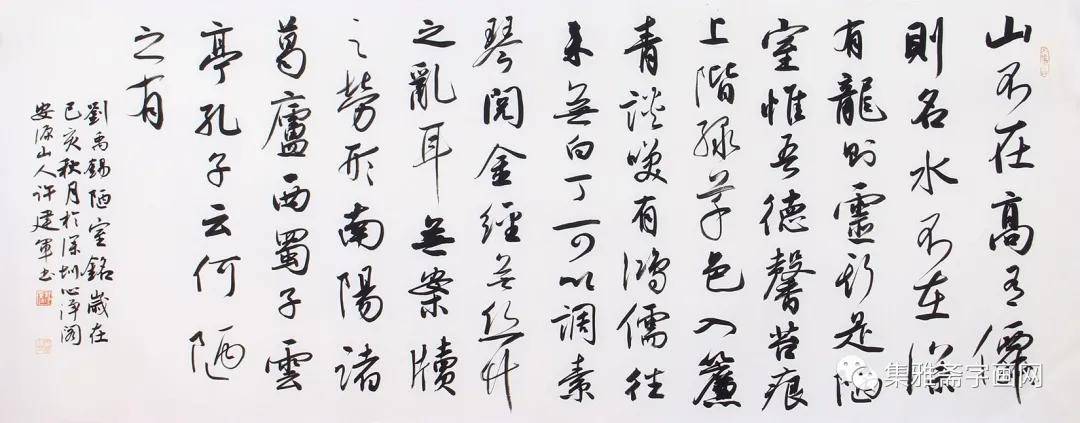 山不在高有僊
則名水不在深
有龍則靈斯是陋
室惟吾德馨苔痕
上階綠草色入簾
青談笑有鴻儒往
来無白丁可以調素
琴閱金經無絲竹
之亂耳無案牘
之勞形南陽諸
葛廬西蜀子雲
亭孔子云何陋
之有
劉禹錫陋室銘歲在
己亥秋月於深圳心淨阁
安源山人许建軍书
集雅斋字画网